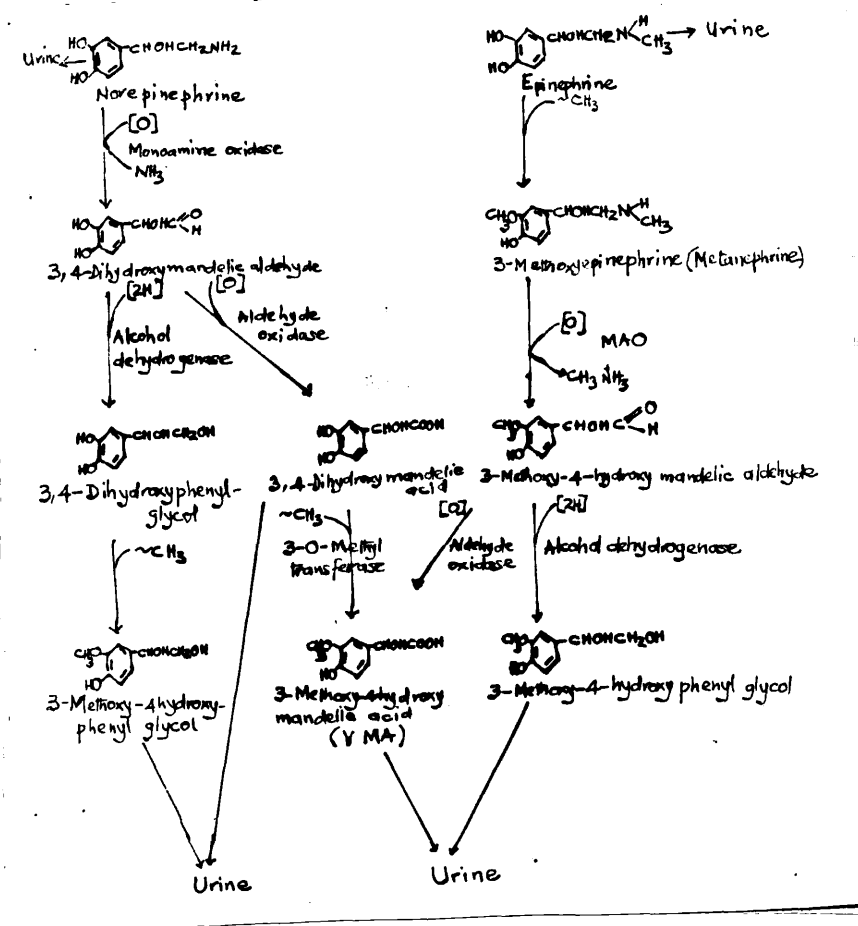 HO CHOHCH2NH2
Urine
HO
Norepinephrine
[O]
Monoamine oxidase
NH3
HO CHOHC O
H
HO
3,4-Dihydroxymandelic aldehyde
[2H] [O]
Alcohol
dehydrogenase
Aldehyde
oxidase
HO CHOHCH2OH
HO
3,4-Dihydroxyphenyl-
glycol
~CH3
CH3O CHOHCH2OH
HO
3-Methoxy-4hydroxy-
phenyl glycol
HO CHOHCOOH
HO
3,4-Dihydroxy mandelic
acid
~CH3
3-O-Methyl
transferase
[O]
Aldehyde
oxidase
CH3O CHOHCOOH
HO
3-Methoxy-4hydroxy
mandelic acid
(VMA)
HO CHOHCH2N H
CH3
Urine
HO
Epinephrine
~CH3
CH3O CHOHCH2N H
CH3
HO
3-Methoxyepinephrine (Metanephrine)
[O]
MAO
CH3NH3
CH3O CHOHC O
H
HO
3-Methoxy-4-hydroxy mandelic aldehyde
[2H]
Alcohol dehydrogenase
CH3O CHOHCH2OH
HO
3-Methoxy-4-hydroxy phenyl glycol
Urine
Urine